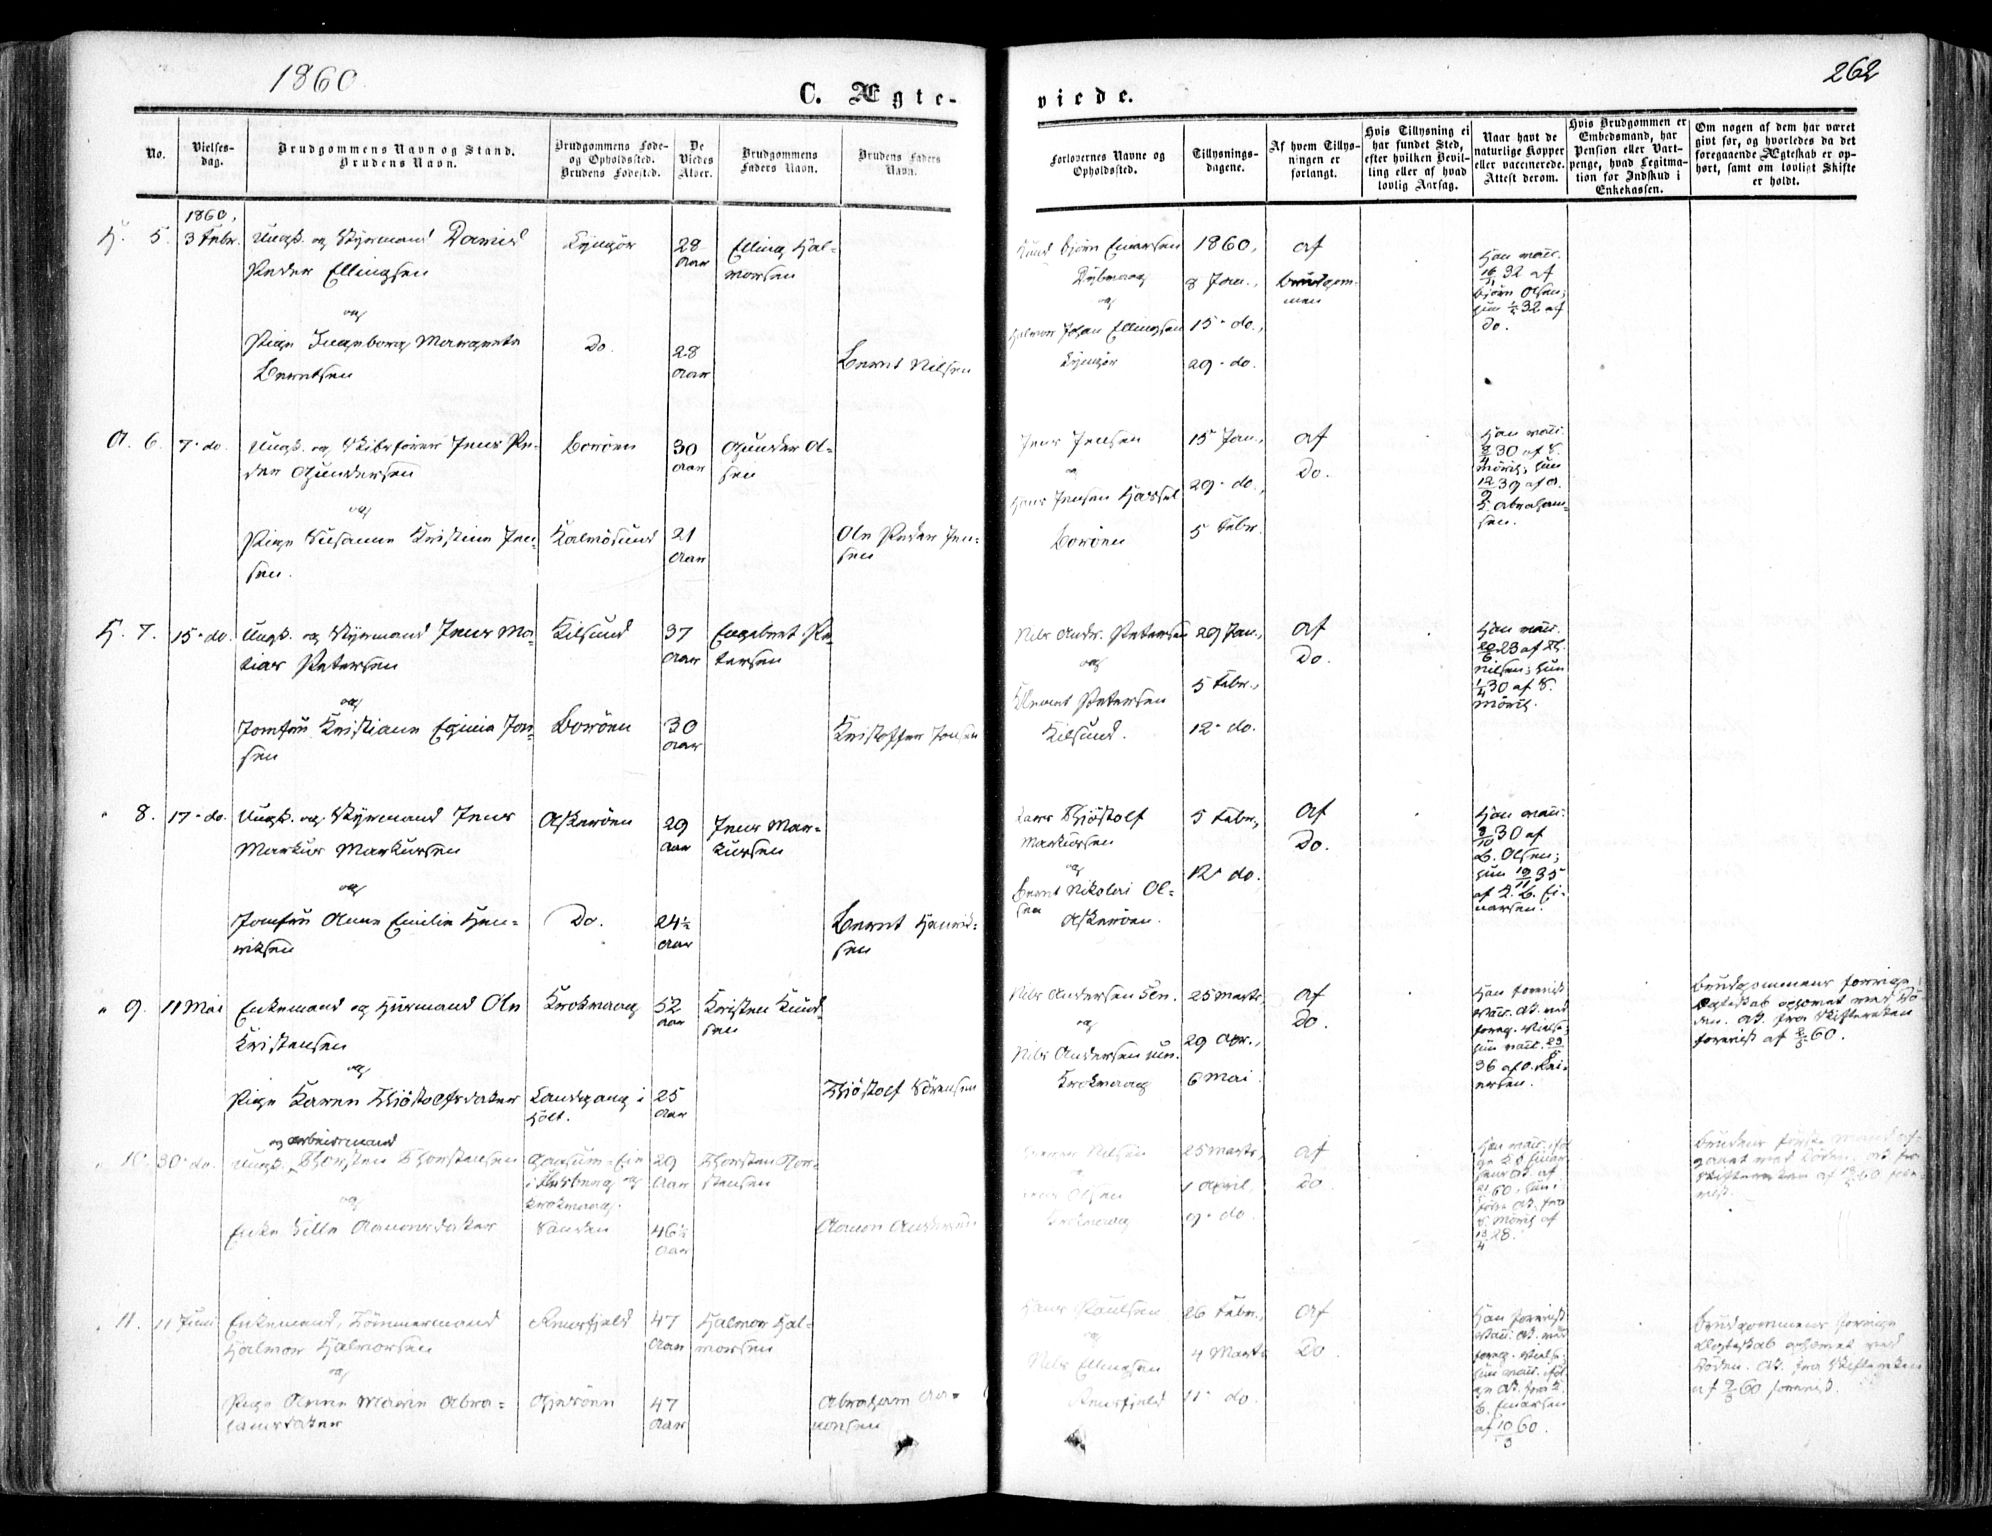 1860
262
C. Ægte-
viede.
No.
Vielses-
dag.
Brudgommens Navn og Stand.
Brudens Navn.
Brudgommens Føde-
og Opholdssted.
Brudens Fødested.
De
Viedes
Alder.
Brudgommens
Faders Navn.
Brudens Faders
Navn.
Forlovernes Navne og
Opholdssted.
Tillysnings-
dagene.
Af hvem Tillys-
ningen er
forlangt.
Hvis Tillysning ei
har fundet Sted,
efter hvilken Bevil-
ling eller af hvad
lovlig Aarsag.
Naar havt de
naturlige Kopper
eller vaccinerede.
Attest derom.
Hvis Brudgommen er
Embedsmand, har
Pension eller Vart-
penge, hvad Legitma-
tion for Indskud i
Enkekassen.
Om nogen af dem har været
givt før, og hvorledes da det
foregaaende Ægteskab er op-
hørt, samt om lovligt Skifte
er holdt.
1860,
H. 5. 3 Febr. Ungk. og Styrmand Daniel
Peder Ellingsen
og
Pige Ingeborg Margrete
Berntsen
Lyngør
Do.
28
Aar
28
Aar
Elling Hal-
vorsen
Bernt Nilsen
Knud Bjørn Einarsen
Dybvaag
og
Halvor Johan Ellingsen
Lyngør
1860,
8 Jan.,
15. do.,
29. do.
af
brudgom-
men
Han vacc.
32 af
Bjørn Olsen;
hun 32 af
Do.
A. 6. 7. do. Ungk. og Skibsfører Jens Pe-
der Gundersen
og
Pige Susanne Kristine Jen-
sen.
Borøen
Kalvøsund
30
Aar
21
Aar
Gunder Ol-
sen
Ole Peder Jen-
sen
Jens Jensen
og
Hans Jensen Hassel
Borøen
15 Jan.,
29. do.,
5 Febr.
af
Do.
Han vacc.
30 af S.
Mörch; hun
12/9 39 af O.
S. Abraham-
sen.
H. 7. 15. do. Ungk. og Styrmand Jens Ma-
tias Petersen
og
Jomfru Kristiane Eginia Jon-
sen
Kilsund
Borøen
37
Aar
30
Aar
Engebret Pe-
tersen
Kristoffer Jonsen
Nils Andr. Petersen
og
Petersen
Kilsund.
29 Jan.,
5 Febr.,
12. do.
af
Do.
Han vacc.
20/6 23 af
Nilsen; hun
1/4 30 af S.
Mörch.
" 8. 17. do. Ungk. og Styrmand Jens
Markus Markussen
og
Jomfru Anne Emilie Hen-
riksen
Askerøen
Do.
29
Aar
24½
Aar
Jens Mar-
kussen
Bernt Henrik-
sen
Lars Thjøstolf
Markussen
og
Bernt Nikolai Ol-
sen
Askerøen.
5 Febr.,
12. do.
af
Do.
Han vacc.
30 af
B. Olsen;
hun 35
af L. B. Ei-
narsen.
" 9. 11 Mai Enkemand og Huusmand Ole
Kristensen
og
Pige Karen Thjøstolfsdatter
Krokvaag
Landgang i
Holt.
52
Aar
25
Aar
Kristen Knud-
sen
Thjøstolf Sørensen
Nils Andersen sen.
og
Nils Andersen jun.
Krokvaag
25 Marts,
29 Apr.,
6 Mai
af
Do.
Han forevist
Vacc. At. ved
foreg. Vielse;
hun vacc. 29/5
36 af O. Rei-
ersen.
Brudgommens forrige
Ægteskab ophævet ved Dø-
den. At. fra Skifteretten
forevist af 2/5 60.
" 10. 30. do. Ungk. og Arbeidsmand Thorsten Thorstensen
og
Enke Silla Aanonsdatter
i Flosberg og
Krokvaag.
Sanden
29
Aar
46½
Aar
Thorsten Thor-
stensen
Aanon Anders
Nilsen
og
Olsen
Krokvaag
25 Marts,
1 April,
9. do.
af
Do.
Han vacc.
60, hun
følge At. fra
S. Mörch af
13/4 28.
Brudens første Mand af-
gaaet ved Døden. At. fra
Skifteretten af 60 fore-
vist.
" 11. 11 Juni Enkemand, Tømmermand
Halvor Halvorsen
og
Pige Anne Marie Abra-
hamsdatter
Amesfjeld
Gjerøen
47
Aar
47
Aar
Halvor Hal-
vorsen
Abraham Aa-
nonsen
Hans Poulsen
og
Nils Ellingsen
26 Febr.,
4 Marts
11. do.
af
Do.
Han forevist
Vacc. At. ved
foreg. Vielse
hun vacc. iføl-
ge At. fra L.
B. Einarsen
af 10/3 60.
Brudgommens forrige
Ægteskab ophævet ved
Døden. At. fra Skifteretten
af 60 forevist.